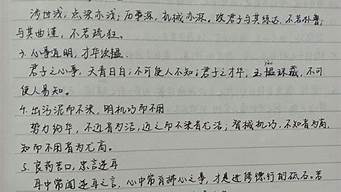 涉世浅,点染亦浅;历事深,机械亦深。故君子与其练达,不若朴鲁;
与其曲谨,不若疏狂。
3. 心事宜明,才华须韫
君子之心事,天青日白,不可使人不知;君子之才华,玉韫珠藏,不可
使人易知。
4. 出污泥而不染,明机巧而不用
势力纷华,不近者为洁,近之而不染者尤洁;智械机巧,不知者为高,
知而不用者为尤高。
5. 良药苦口,忠言逆耳
耳中常闻逆耳之言,心中常有拂心之事,才是进德修行的砥石。若